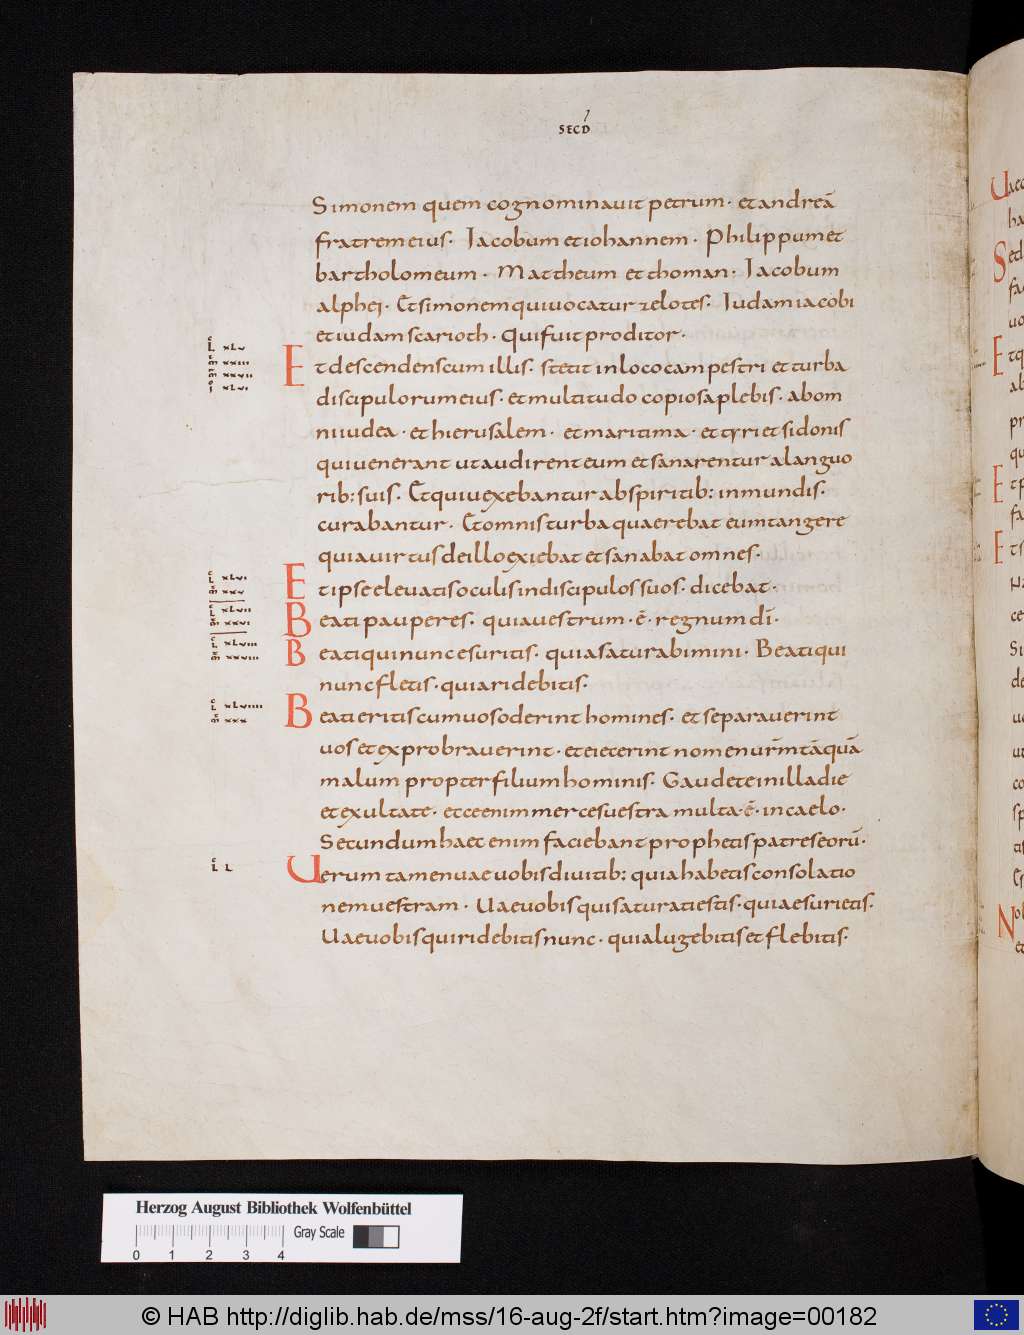 SECD
Simonem quem cognominauit petrum · et andreā
fratrem eius · Iacobum et iohannem · Philippum et
bartholomeum · Mattheum et thoman · Iacobum
alphei · Et simonem qui uocatur zelotes · Iudam iacobi
et iudam scarioth · qui fuit proditor ·
L xLv
m xxiii
m xxvii
I xLvi
Et descendens cum illis · stetit in loco campestri et turba
discipulorum eius · et multitudo copiosa plebis · ab om
ni iudea · et hierusalem · et maritima · et tyri et sidonis
qui uenerant ut audirent eum et sanarentur a languo
rib: suis · Et qui uexebantur ab spiritib: inmundis ·
curabantur · Et omnis turba quaerebat eum tangere
quia uirtus de illo exiebat et sanabat omnes ·
L xLvi
m xxv
Et ipse eleuatis oculis in discipulos suos · dicebat ·
L xLvii
m xxvi
Beati pauperes · quia uestrum · ē · regnum dī ·
L xLviii
m xxviii
Beati qui nunc esuritis · quia saturabimini · Beati qui
nunc fletis · quia ridebitis ·
L xLviiii
m xxx
Beati eritis cum uos oderint homines · et separauerint
uos et exprobrauerint · et eiecerint nomen ur̄m tāquā
malum propter filium hominis · Gaudete in illa die
et exultate · ecce enim merces uestra multa · ē · in caelo ·
Secundum haec enim faciebant prophetis patres eorū ·
L L
Uerum tamen uae uobis diuitib: quia habetis consolatio
nem uestram · Uae uobis qui saturati estis · quia esurietis ·
Uae uobis qui ridebitis nunc · quia lugebitis et flebitis ·
Herzog August Bibliothek Wolfenbüttel
Gray Scale
0 1 2 3 4
© HAB http://diglib.hab.de/mss/16-aug-2f/start.htm?image=00182